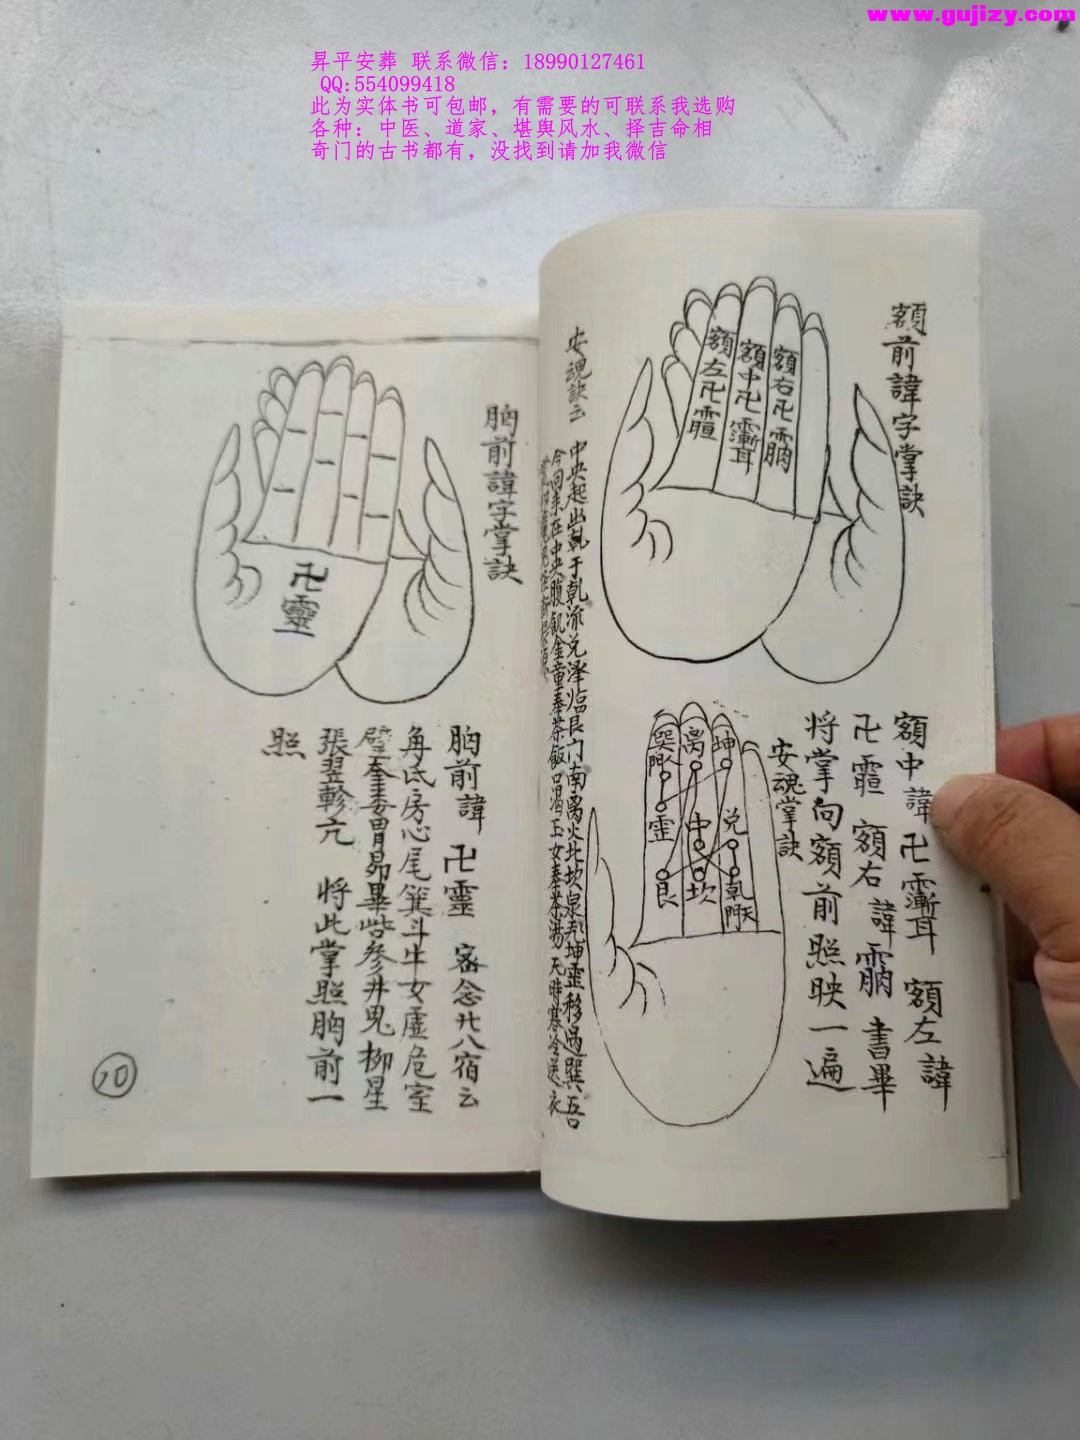 www.gujizy.com
昇平安葬 联系微信：18990127461
QQ:554099418
此为实体书可包邮，有需要的可联系我选购
各种：中医、道家、堪舆风水、择吉命相
奇门的古书都有，没找到请加我微信
額前諱字掌訣
額左卍
額中卍
額右卍
額中諱卍 額左諱
卍 額右諱 書畢
将掌向額前照映一遍
安魂掌訣
巽 离 坤
中 兑
艮 坎 乾
安魂訣云
中央起出 于乾 兑泽临艮门南离火北坎泉 坤灵移過巽吾
今回来在中央腹飢金童奉茶飯口渴玉女奉茶湯天時寒冷送衣
胸前諱字掌訣
卍靈
胸前諱 卍靈 密念廿八宿云
角氐房心尾箕斗牛女虚危室
壁奎婁胃昴畢 参井鬼柳星
張翌軫亢 将此掌照胸前一
照
10